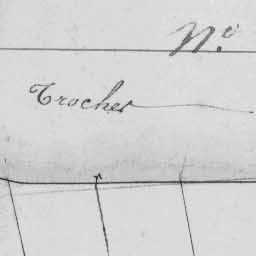 N.º
Trocher